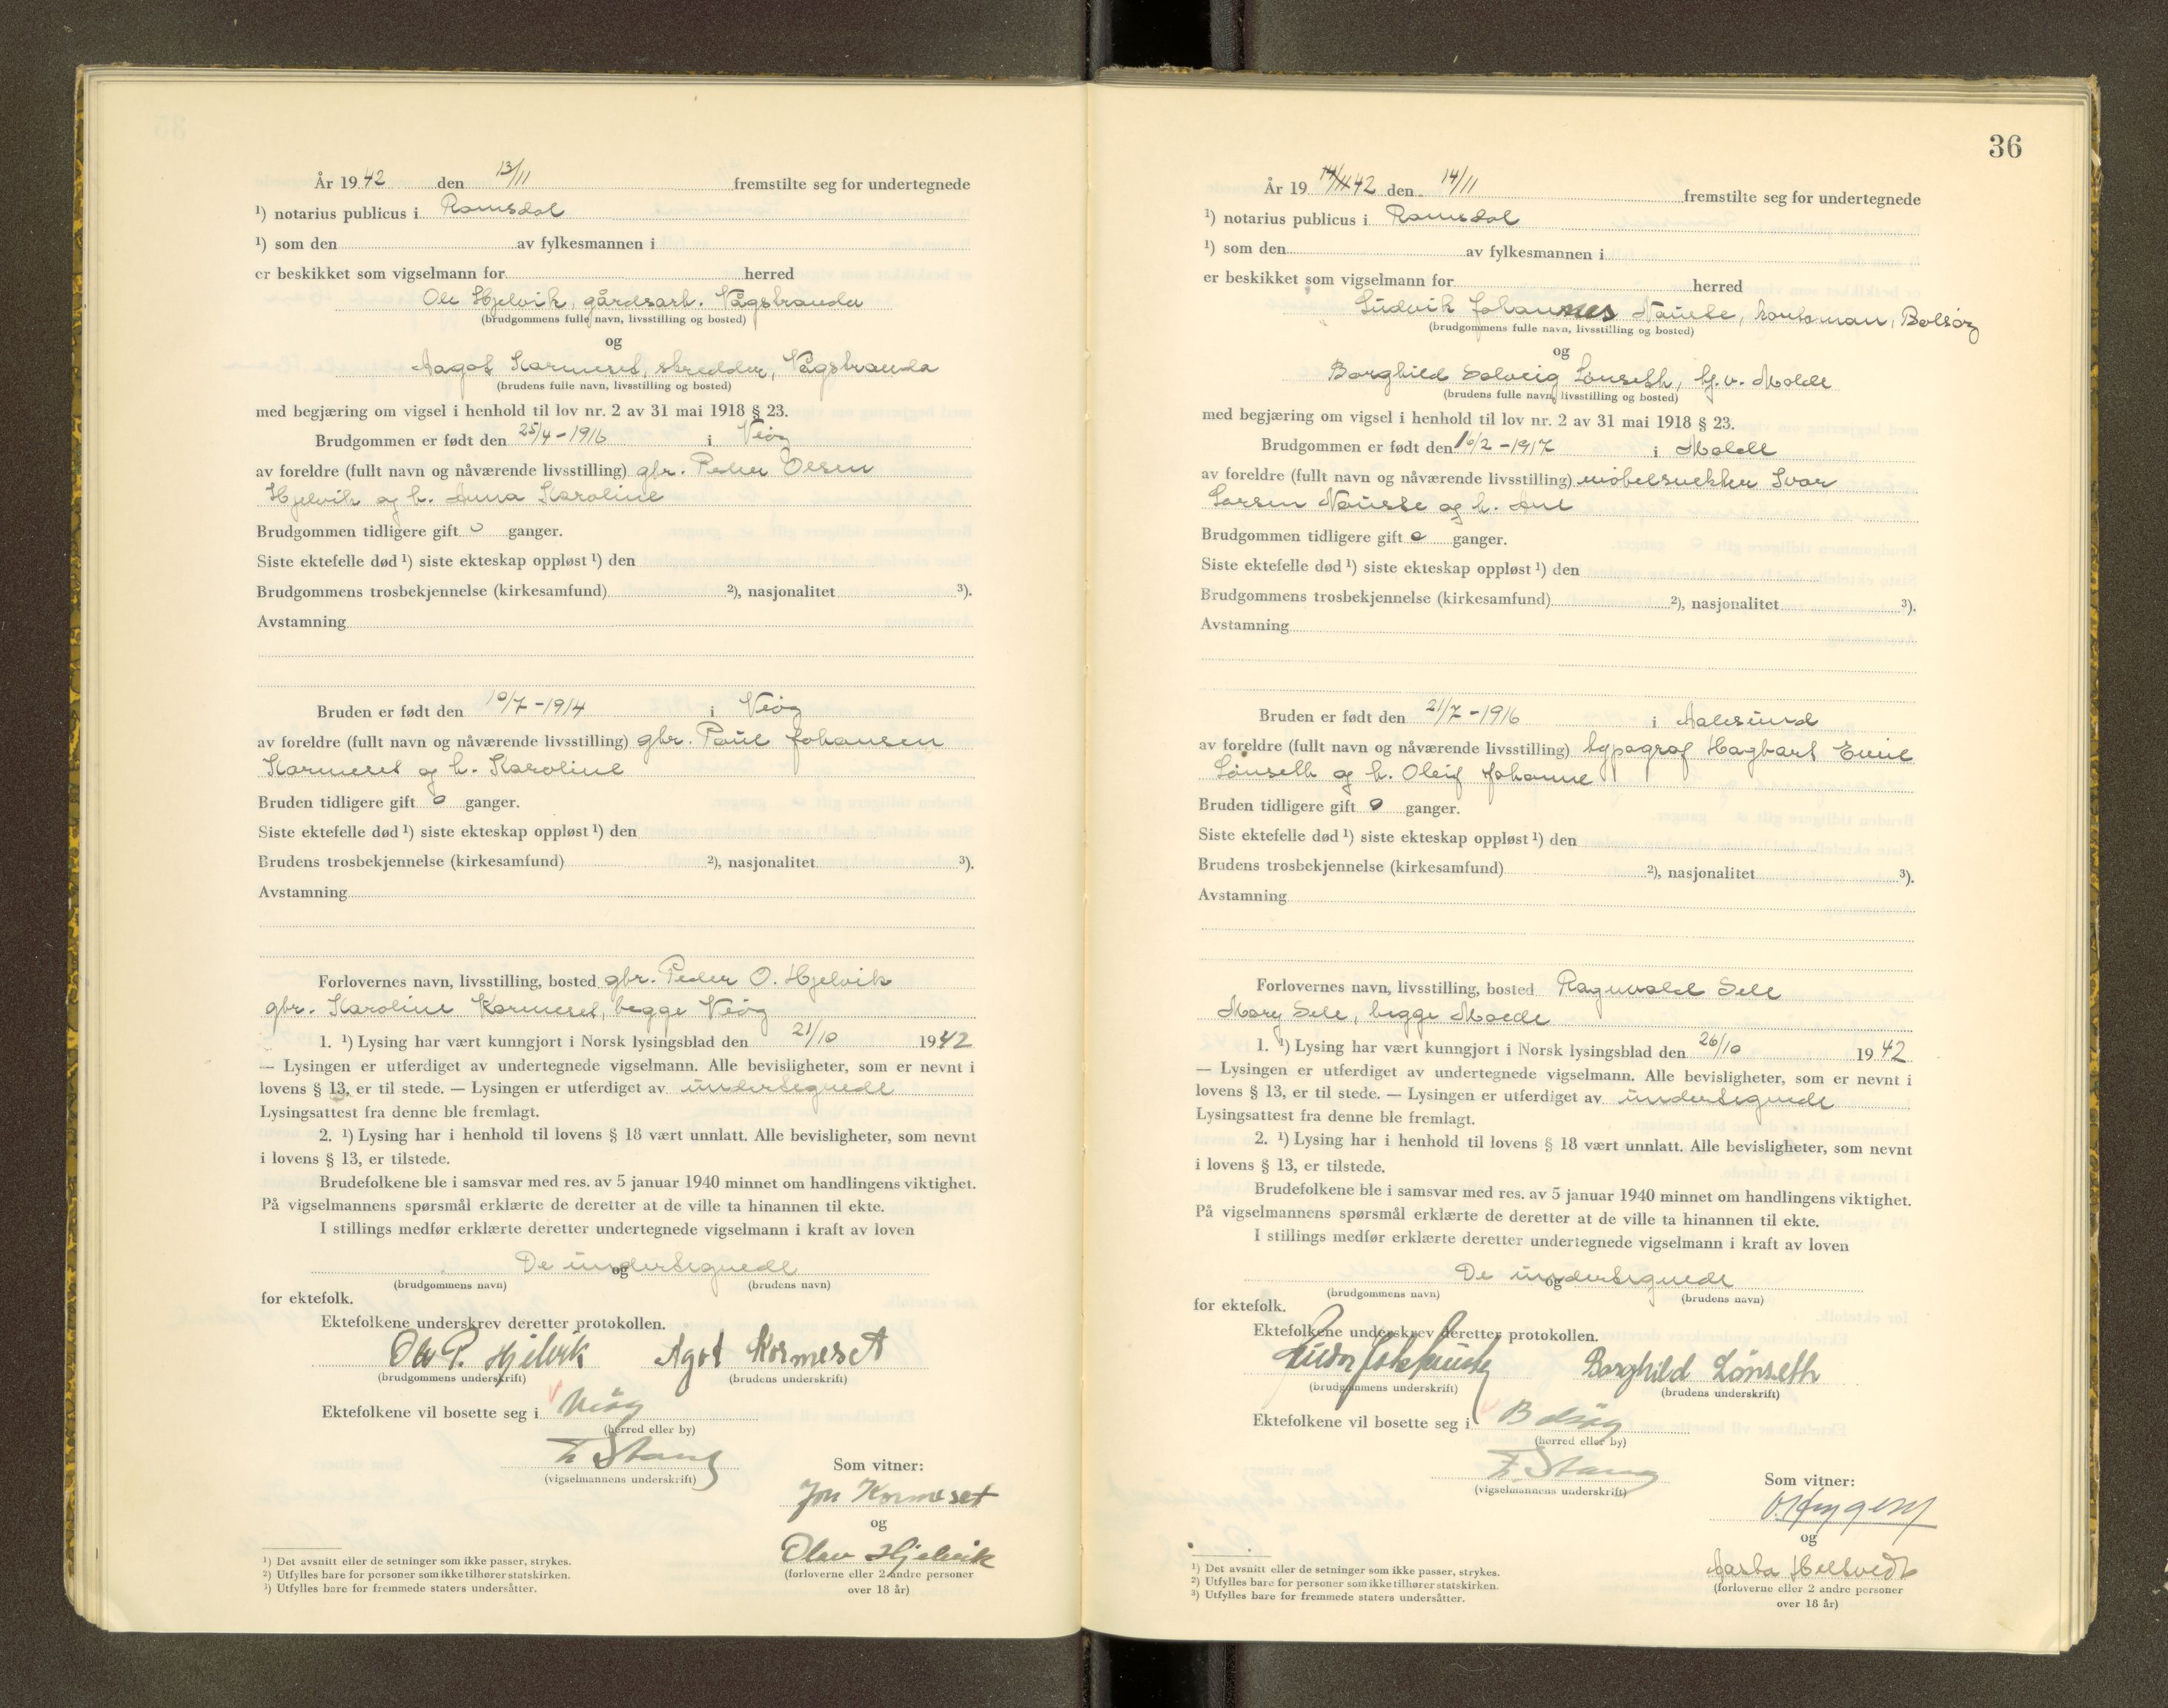 År 1942 den 13/11 fremstilte seg for undertegnede
¹) notarius publicus i Romsdal
¹) som den av fylkesmannen i
er beskikket som vigselmann for herred
Ole Hjelvik, gårdsarb. Vågstranda
(brudgommens fulle navn, livsstilling og bosted)
og
Aagot Kormeset, skredder, Vågstranda
(brudens fulle navn, livsstilling og bosted)
med begjæring om vigsel i henhold til lov nr. 2 av 31 mai 1918 § 23.
Brudgommen er født den 25/4-1916 i Veøy
av foreldre (fullt navn og nåværende livsstilling) gbr. Peder Olsen
Hjelvik og h. Anna Karoline
Brudgommen tidligere gift 0 ganger.
Siste ektefelle død ¹) siste ekteskap oppløst ¹) den
Brudgommens trosbekjennelse (kirkesamfund) ²), nasjonalitet ³).
Avstamning
Bruden er født den 10/7-1914 i Veøy
av foreldre (fullt navn og nåværende livsstilling) gbr. Paul Johansen
Kormeset og h. Karoline
Bruden tidligere gift 0 ganger.
Siste ektefelle død ¹) siste ekteskap oppløst ¹) den
Brudens trosbekjennelse (kirkesamfund) ²), nasjonalitet ³).
Avstamning
Forlovernes navn, livsstilling, bosted gbr. Peder O. Hjelvik
gbr. Karoline Kormeset, begge Veøy
1. ¹) Lysing har vært kunngjort i Norsk lysingsblad den 21/10 1942
— Lysingen er utferdiget av undertegnede vigselmann. Alle bevisligheter, som er nevnt i
lovens § 13, er til stede. — Lysingen er utferdiget av undertegnede
Lysingsattest fra denne ble fremlagt.
2. ¹) Lysing har i henhold til lovens § 18 vært unnlatt. Alle bevisligheter, som nevnt
i lovens § 13, er tilstede.
Brudefolkene ble i samsvar med res. av 5 januar 1940 minnet om handlingens viktighet.
På vigselmannens spørsmål erklærte de deretter at de ville ta hinannen til ekte.
I stillings medfør erklærte deretter undertegnede vigselmann i kraft av loven
De undertegnede
og
(brudgommens navn) (brudens navn)
for ektefolk.
Ektefolkene underskrev deretter protokollen.
Ole P. Hjelvik Agot Kormeset
(brudgommens underskrift) (brudens underskrift)
Ektefolkene vil bosette seg i Veøy
(herred eller by)
Stang
(vigselmannens underskrift)
Som vitner:
Jon Kormeset
og
Olav Hjelvik
(forloverne eller 2 andre personer
over 18 år)
¹) Det avsnitt eller de setninger som ikke passer, strykes.
²) Utfylles bare for personer som ikke tilhører statskirken.
³) Utfylles bare for fremmede staters undersåtter.
36
År 19 14/11 42 den 14/11 fremstilte seg for undertegnede
¹) notarius publicus i Romsdal
¹) som den av fylkesmannen i
er beskikket som vigselmann for herred
Ludvik Johannes Nauste, kontoman, Bolsøy
(brudgommens fulle navn, livsstilling og bosted)
og
Borghild Solveig Lønseth, hj.v. Molde
(brudens fulle navn, livsstilling og bosted)
med begjæring om vigsel i henhold til lov nr. 2 av 31 mai 1918 § 23.
Brudgommen er født den 16/2-1917 i Molde
av foreldre (fullt navn og nåværende livsstilling) møbelsnekker Ivar
Larsen Nauste og h. Ane
Brudgommen tidligere gift 0 ganger.
Siste ektefelle død ¹) siste ekteskap oppløst ¹) den
Brudgommens trosbekjennelse (kirkesamfund) ²), nasjonalitet ³).
Avstamning
Bruden er født den 21/7-1916 i Aalesund
av foreldre (fullt navn og nåværende livsstilling) typograf Hagbart Emil
Lønseth og h. Johanne
Bruden tidligere gift 0 ganger.
Siste ektefelle død ¹) siste ekteskap oppløst ¹) den
Brudens trosbekjennelse (kirkesamfund) ²), nasjonalitet ³).
Avstamning
Forlovernes navn, livsstilling, bosted Ragnvald Sele
Mary Sele, begge Molde
1. ¹) Lysing har vært kunngjort i Norsk lysingsblad den 26/10 1942
— Lysingen er utferdiget av undertegnede vigselmann. Alle bevisligheter, som er nevnt i
lovens § 13, er til stede. — Lysingen er utferdiget av undertegnede
Lysingsattest fra denne ble fremlagt.
2. ¹) Lysing har i henhold til lovens § 18 vært unnlatt. Alle bevisligheter, som nevnt
i lovens § 13, er tilstede.
Brudefolkene ble i samsvar med res. av 5 januar 1940 minnet om handlingens viktighet.
På vigselmannens spørsmål erklærte de deretter at de ville ta hinannen til ekte.
I stillings medfør erklærte deretter undertegnede vigselmann i kraft av loven
De undertegnede
og
(brudgommens navn) (brudens navn)
for ektefolk.
Ektefolkene underskrev deretter protokollen.
Borghild Lønseth
(brudgommens underskrift) (brudens underskrift)
Ektefolkene vil bosette seg i Bolsøy
(herred eller by)
Stang
(vigselmannens underskrift)
Som vitner:
og
Aasta Heltvedt
(forloverne eller 2 andre personer
over 18 år)
¹) Det avsnitt eller de setninger som ikke passer, strykes.
²) Utfylles bare for personer som ikke tilhører statskirken.
³) Utfylles bare for fremmede staters undersåtter.